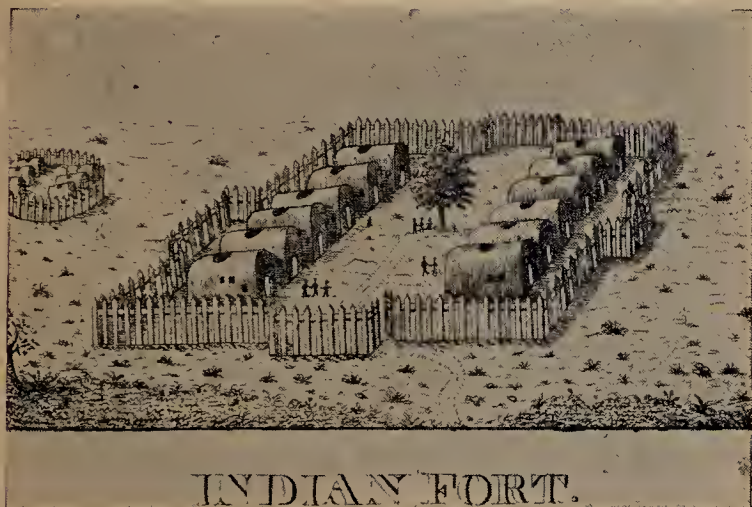 INDIAN FORT.